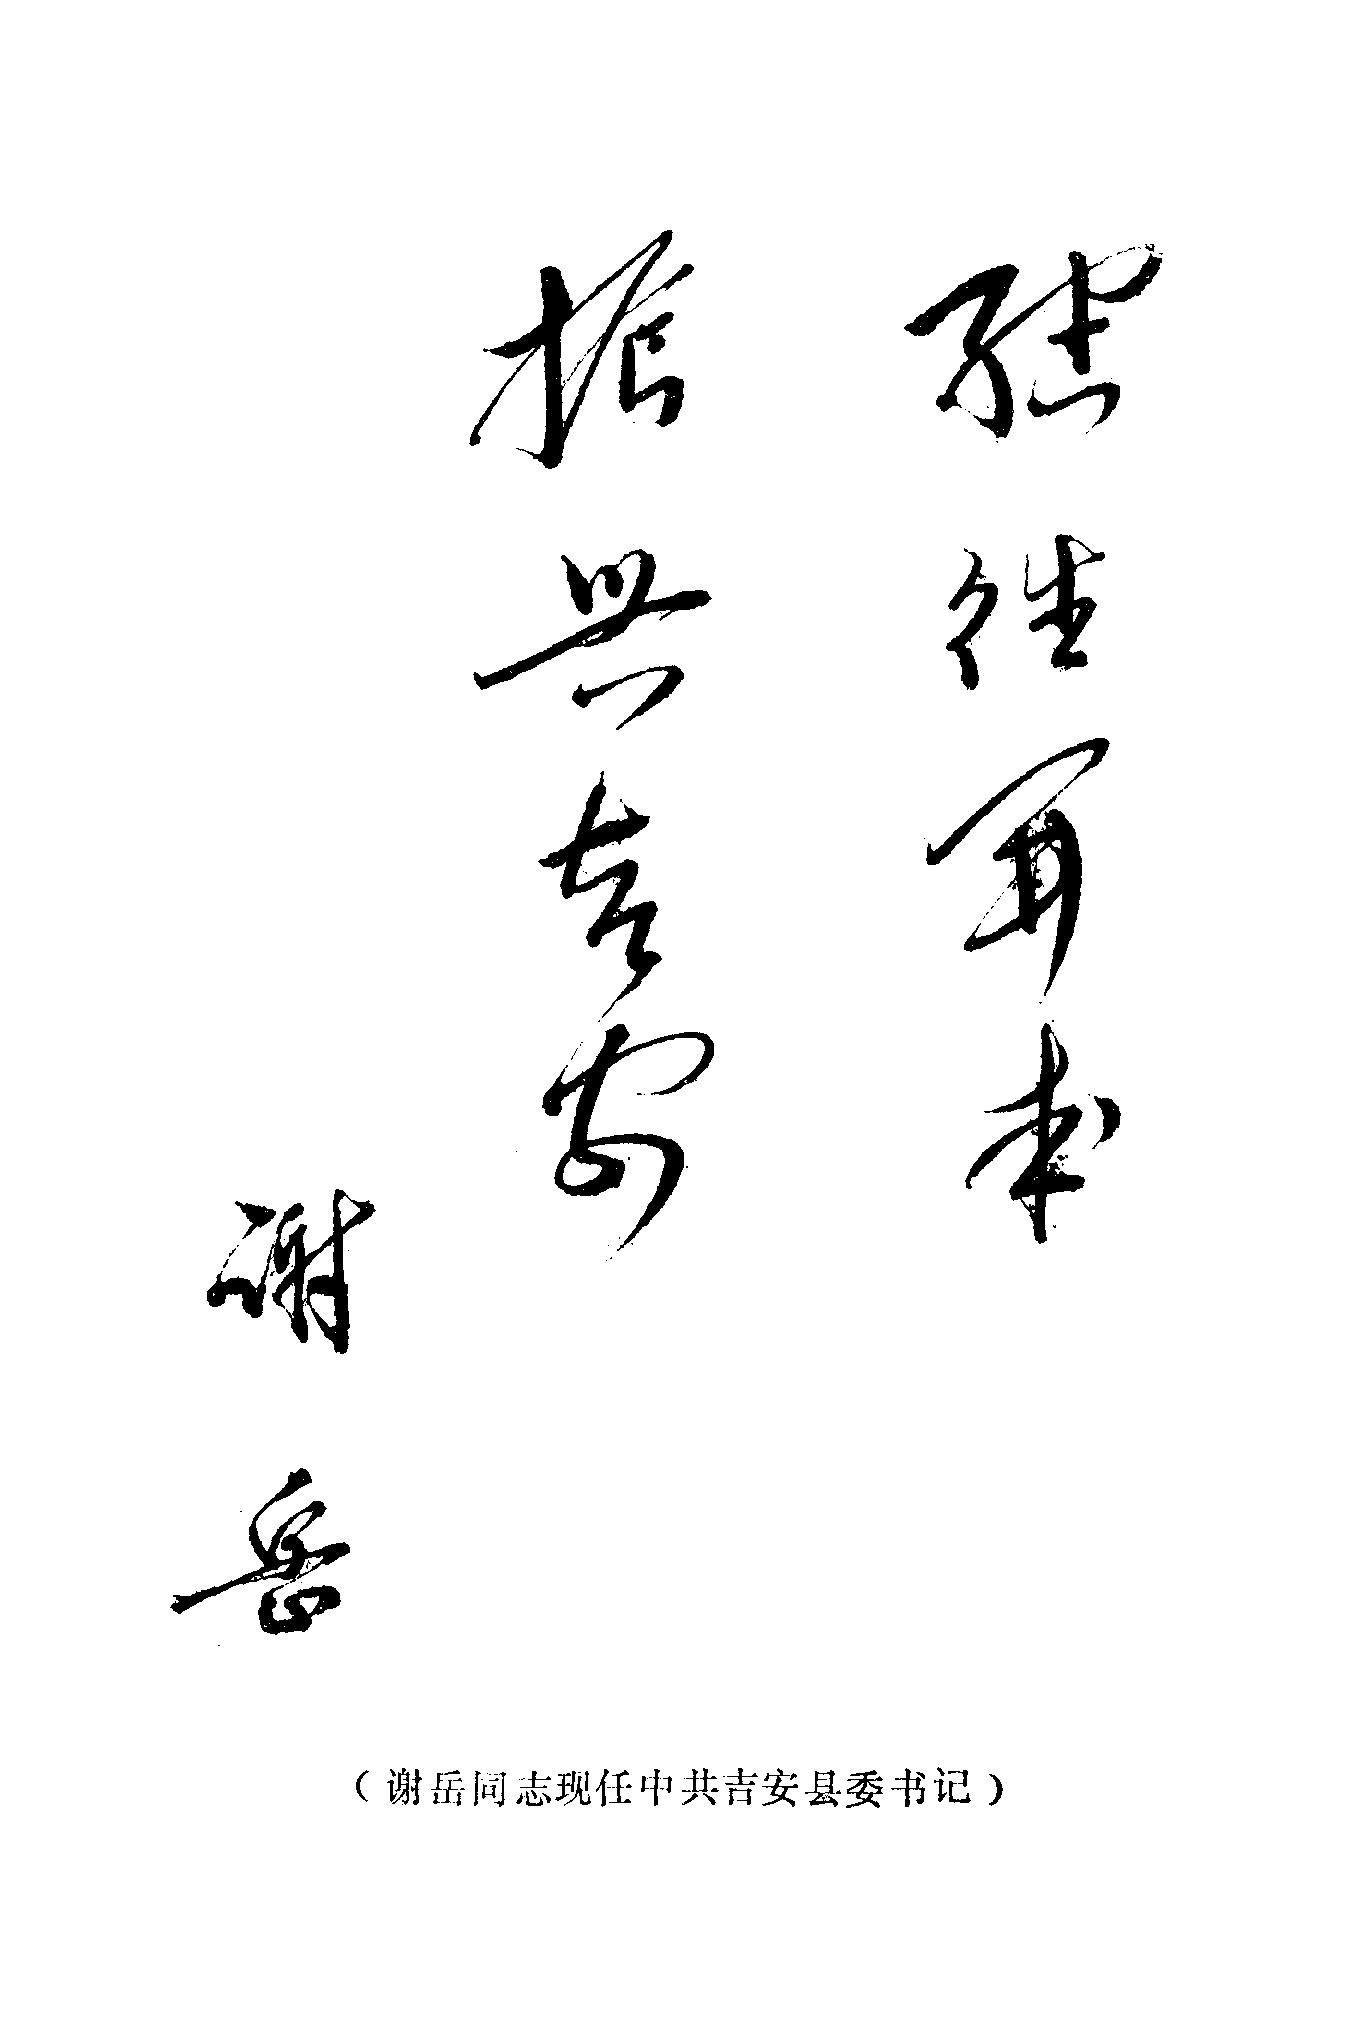 继往开来
振兴吉安
谢岳
（谢岳同志现任中共吉安县委书记）